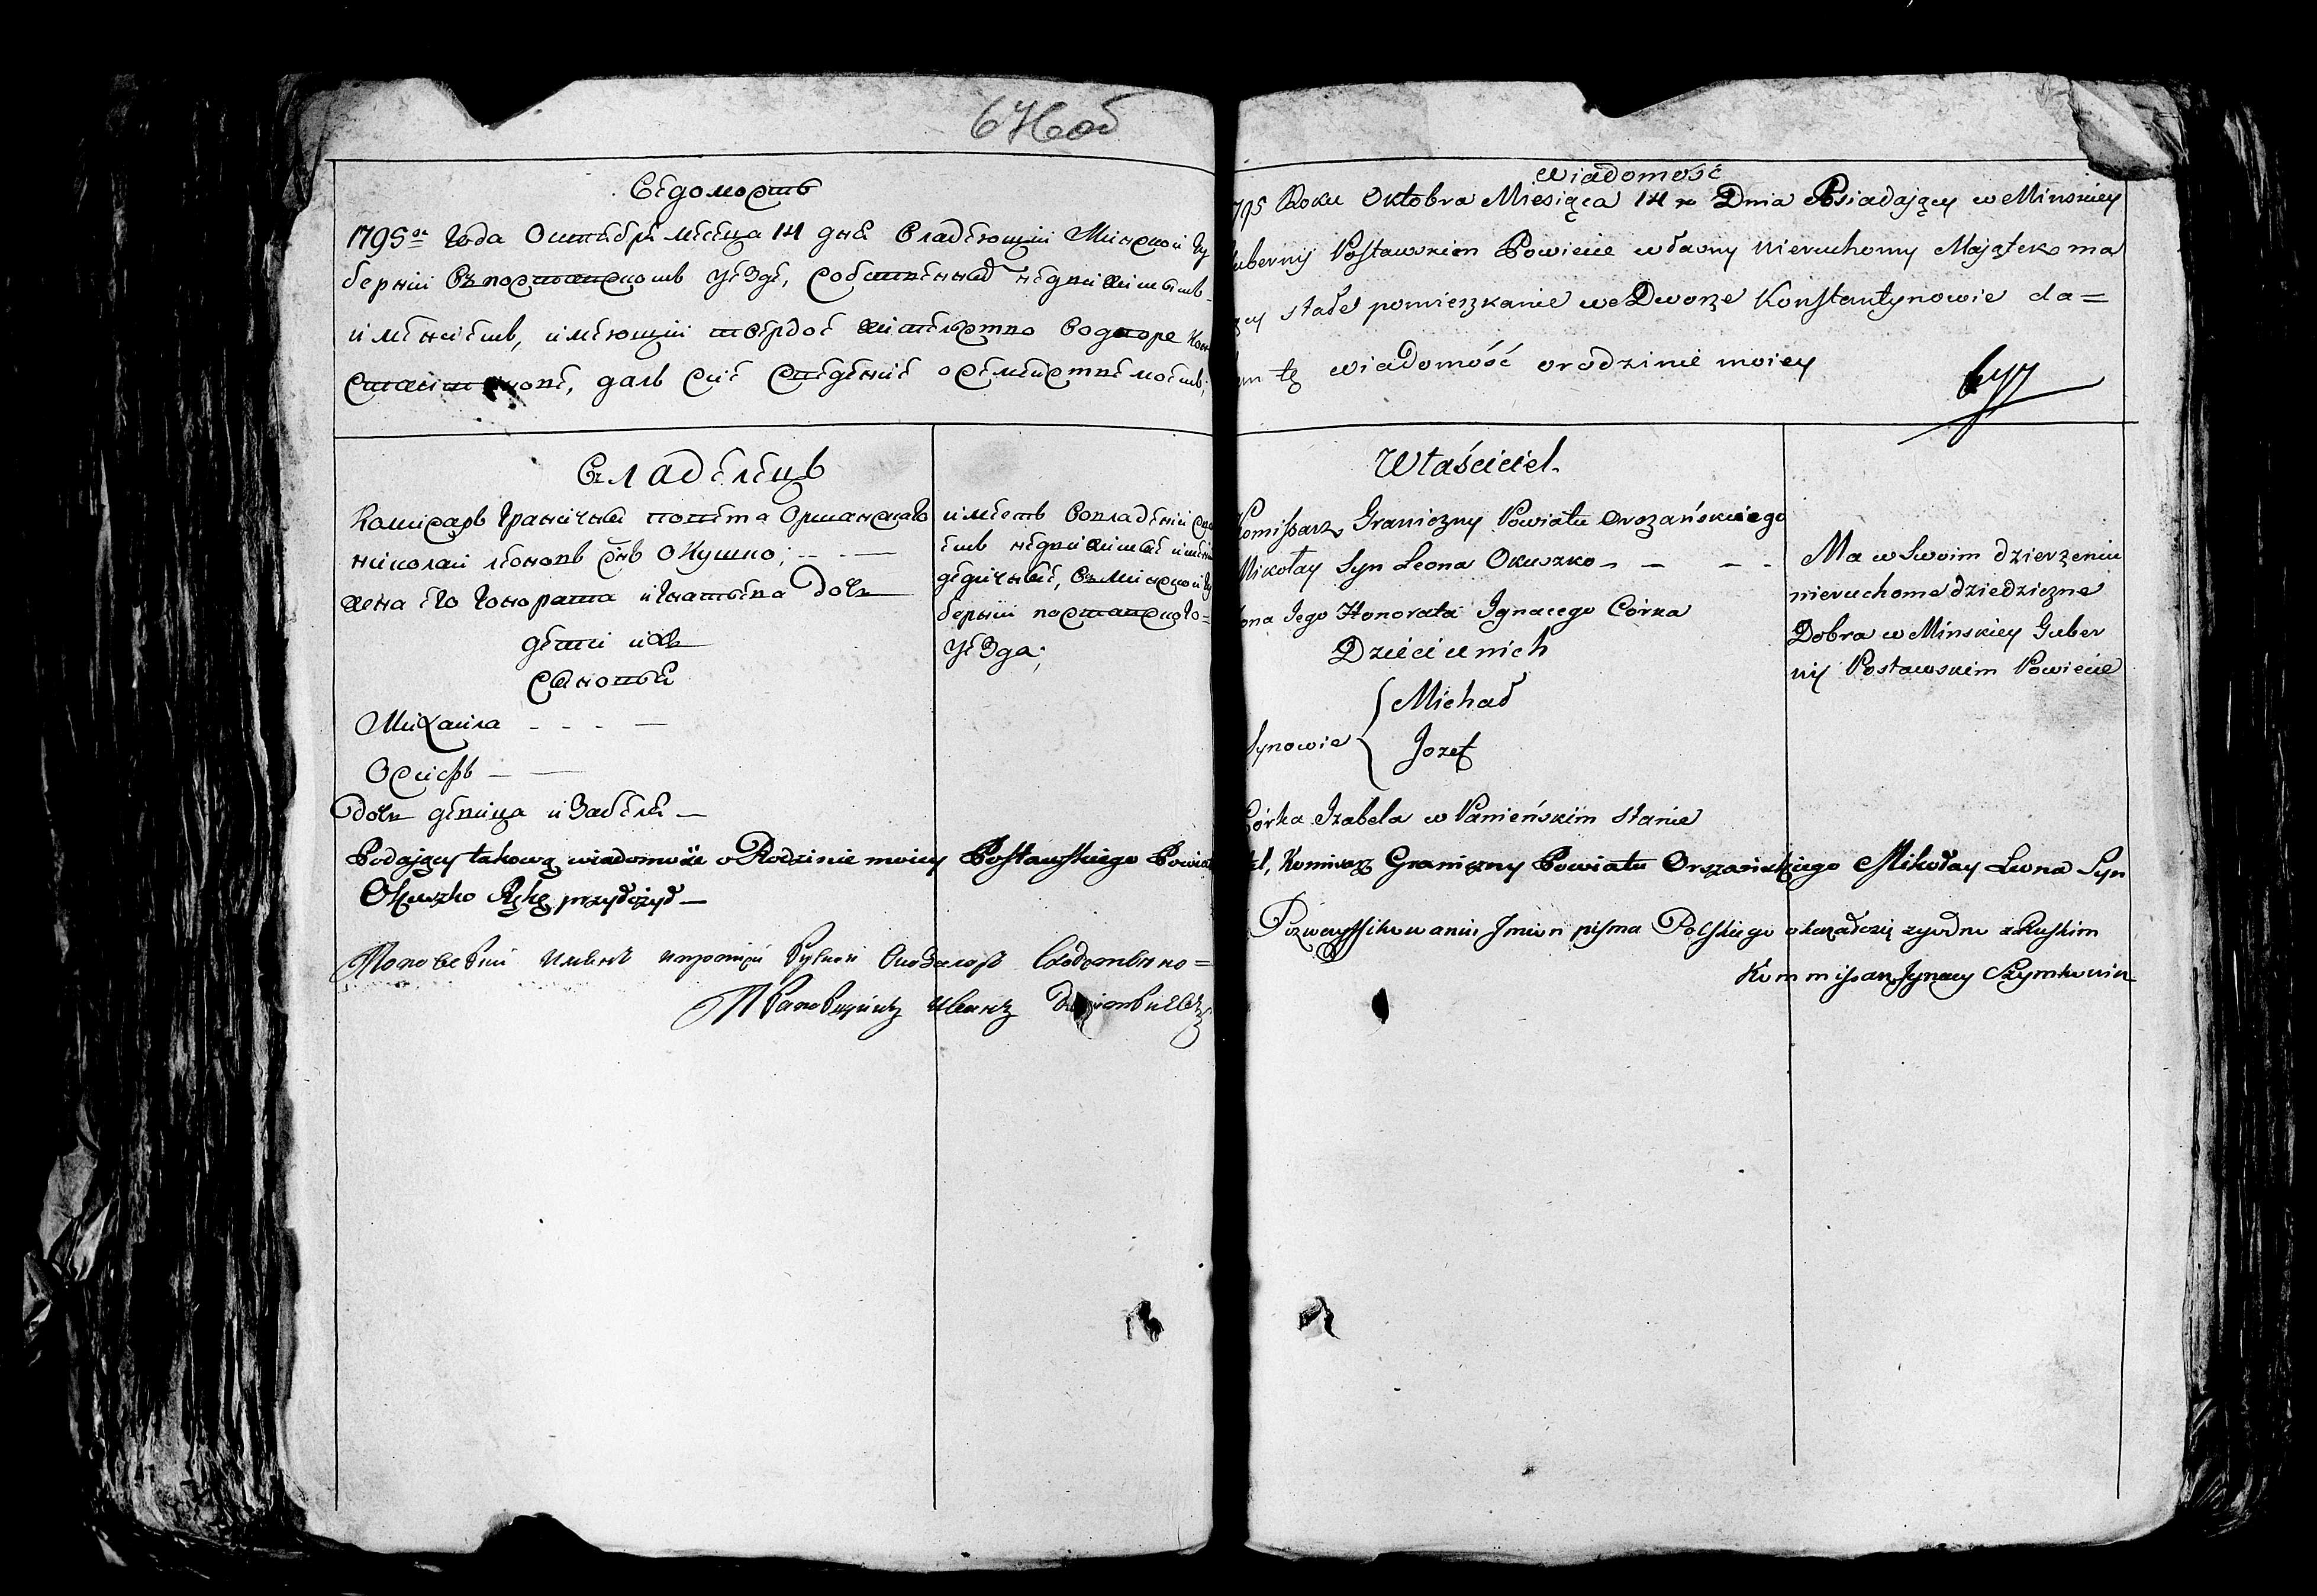 676об
Вѣдомость
1795го Года Октября месеца 14 дня Владеющий Минской Гу
бернии въ поставскомъ уезде, собственныя недвижимымъ
имениемъ, имеющий твердое жительство водворе Кон
стантинове, далъ сие сведение о семействе моемъ,
Владелецъ
Комисаръ Граничный повета Оршанскаго
николай леоновъ снъ Окушко; - - -
жена его Гонората игнатьева Дочь
дети ихъ
Сыновья
Михаила - - - -
Осифъ - -
Дочь девица изабеля -
имеетъ вовладении сво
емъ недвижимые имени
дедичные, въ Минской гу
бернии поставского
уезда;
Podający takową wiadomość o Rodzinie moiey Postawskiego Powia
Okuszko Rękę przyłożył -
wiadomość
795 Roku Oktobra Miesiąca 14 go Dnia Posiadający w Minskiey
uberny Postawskim Powiecie własny Nieruchomy Majątek ma
cy stałe pomieszkanie we Dworze Konstantynowie da=
em tę wiadomość o rodzinie moiey
677
Właściciel
Komissarz Graniczny Powiatu Orszańskiego
Mikołay Syn Leona Okuszko - - - -
ona Jego Honorata Ignacego Córka
Dzieci u nich
Michał
Synowie
Jozef
Córka Izabela w Panieńskim stanie
Ma w Swoim dzierzeniu
nieruchome dziedziczne
Dobra w Minskiey Guber
nij Postawskim Powiecie
Komisarz Graniczny Powiatu Orszańskiego Mikołay Leona Syn
Po zweryfikowaniu Jmion pisma Polskiego okazało się zgodne z Ruskim
Kommissarz Ignacy Szymkowic